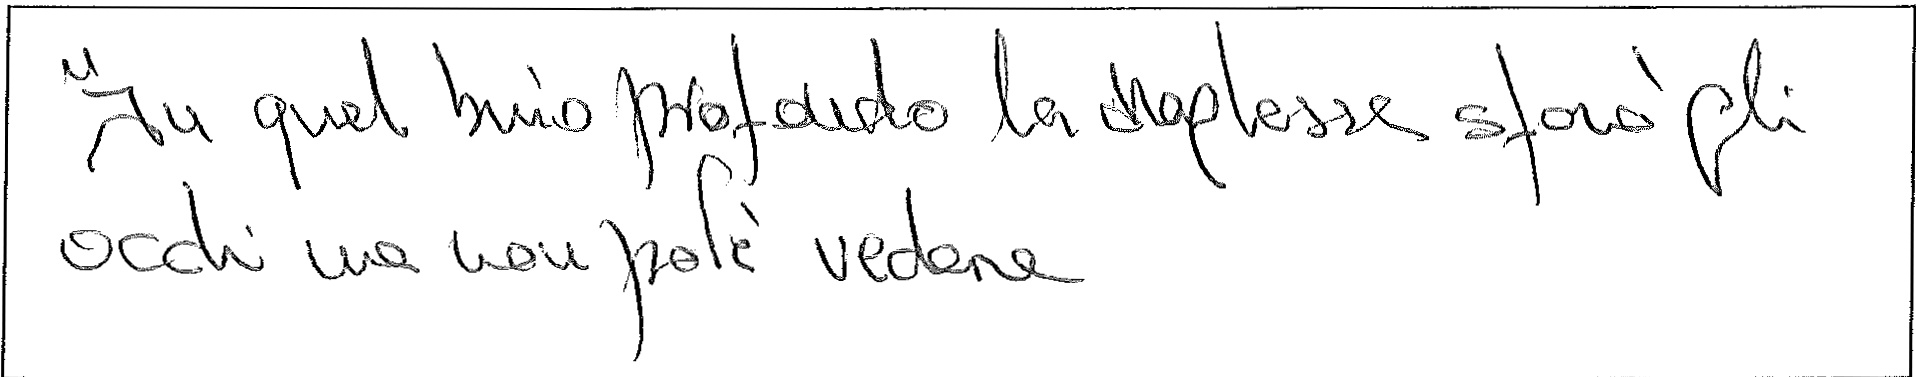 "In quel buio profondo la sforò gli
occhi ma non poté vedere